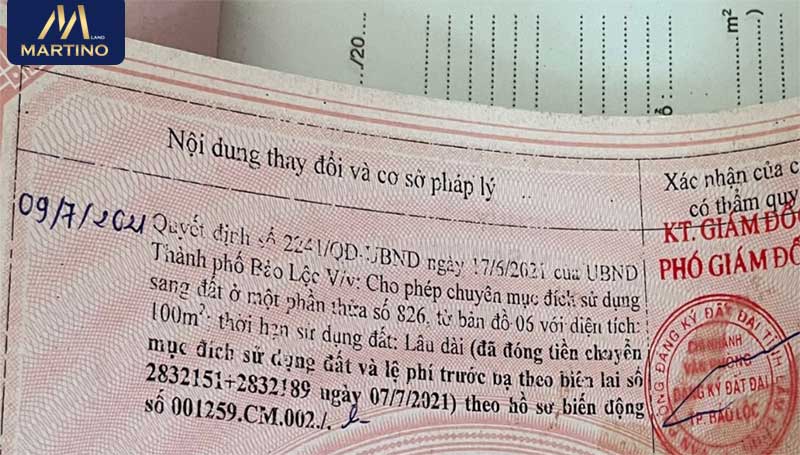 M LAND
MARTINO
../20...
m²
Nội dung thay đổi và cơ sở pháp lý
Xác nhận của c
có thẩm quy
09/7/2021
KT. GIÁM ĐỐ
PHÓ GIÁM ĐỐ
Quyết định số 2241/QĐ-UBND ngày 17/6/2021 của UBND
Thành phố Bảo Lộc V/v: Cho phép chuyên mục đích sử dụng
sang đất ở một phần thửa số 826, tờ bản đồ 06 với diện tích:
100m². thời hạn sử dụng đất: Lâu dài (đã đóng tiền chuyển
mục đích sử dụng đất và lệ phí trước bạ theo biên lai số
2832151+2832189 ngày 07/7/2021) theo hồ sơ biến động
số 001259.CM.002./.
ĐĂNG KÝ ĐẤT ĐAI TỈNH
CHI NHÁNH
VĂN PHÒNG
ĐĂNG KÝ ĐẤT ĐAI
TP. BẢO LỘC